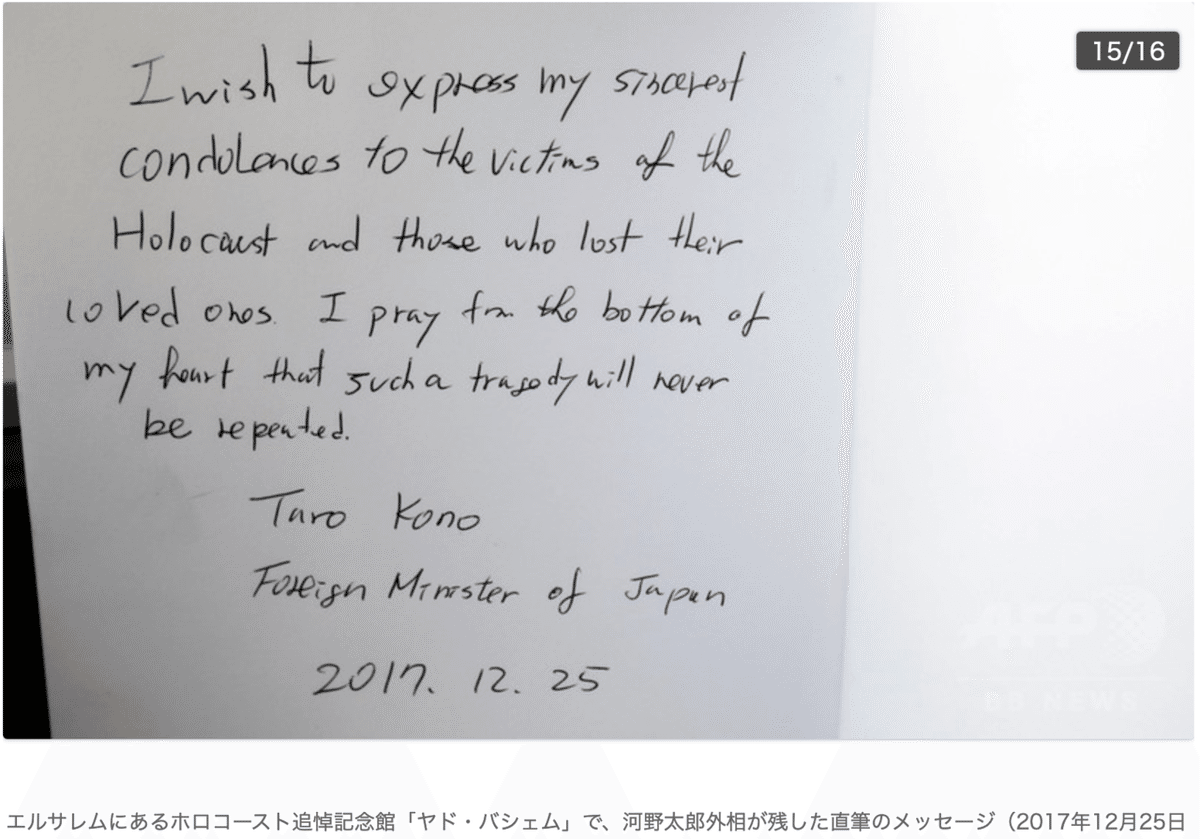 15/16
I wish to express my sincerest
condolences to the victims of the
Holocaust and those who lost their
loved ones. I pray from the bottom of
my heart that such a tragedy will never
be repeated.
Taro Kono
Foreign Minister of Japan
2017. 12. 25
AFP
BB NEWS
エルサレムにあるホロコースト追悼記念館「ヤド・バシェム」で、河野太郎外相が残した直筆のメッセージ（2017年12月25日